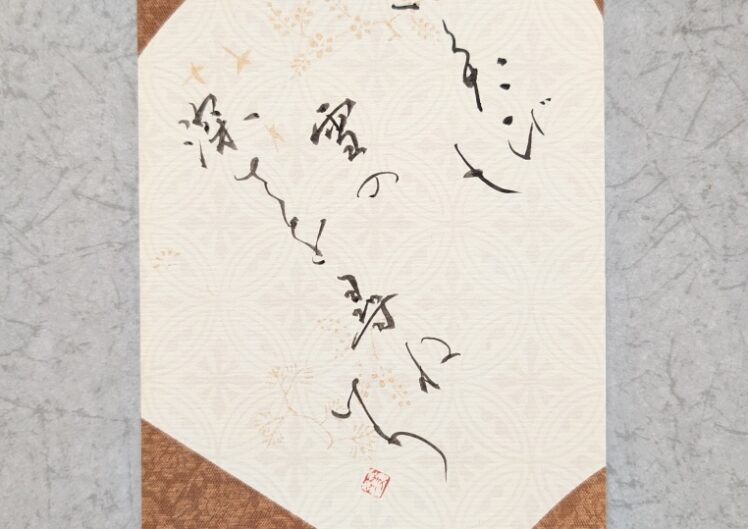 たびも
雪の
深さを
尋ね
けり